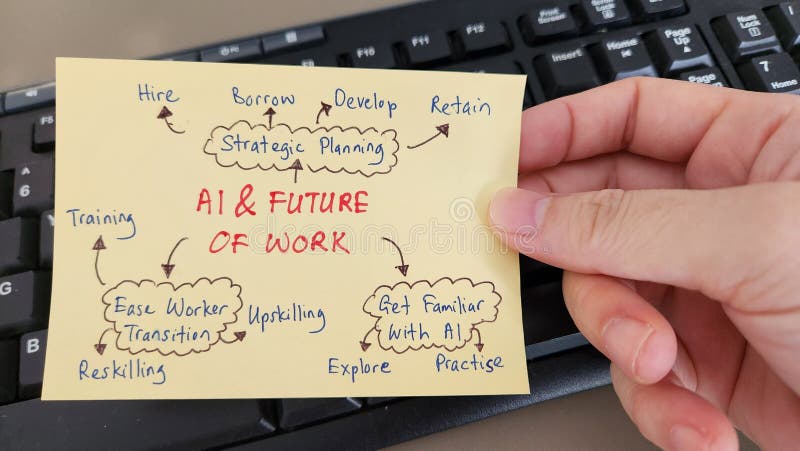 Hire Borrow Develop Retain
Strategic Planning
AI & FUTURE
OF WORK
Training
Ease Worker
Transition
Upskilling
Reskilling
Get Familiar
With AI
Explore
Practise
F5
F10
F11
F12
Insert
Home
Page
Up
Page
Num
Lock
Home
7
Home
6
B
dreamstime